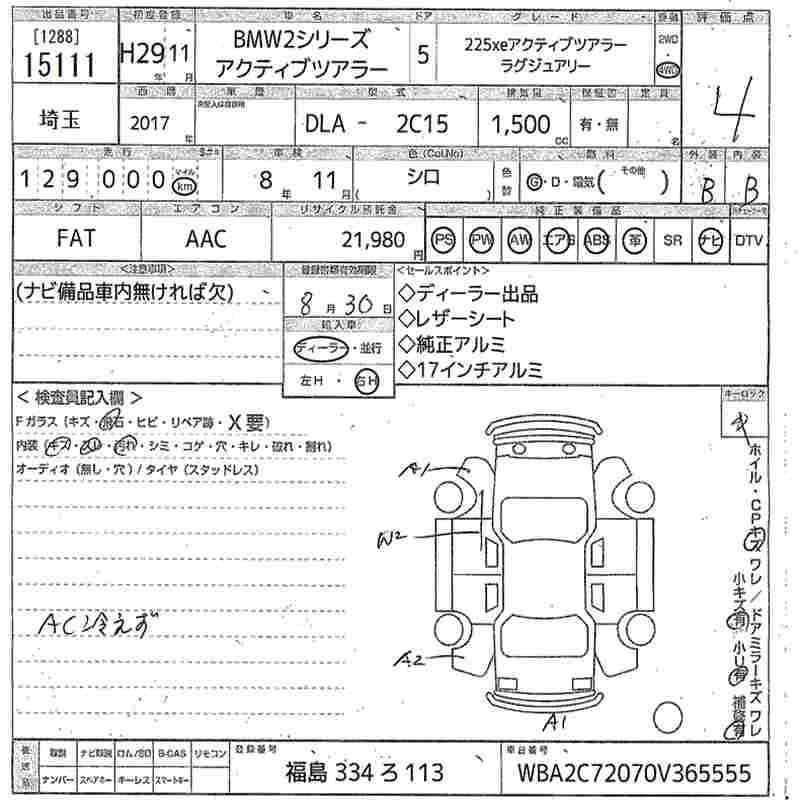 出品番号 初度登録 車名 ドア グレード 評価点
[1288]
15111
H29年 11月
BMW2シリーズ
アクティブツアラー
5
225xeアクティブツアラー
ラグジュアリー
2WD
・
4WD
4
埼玉
西暦 車歴 型式 排気量 保証書 定員
2017年
DLA - 2C15
1,500 CC
有・無
名
走行 車検 色(Col.No) 燃料 外装 内装
129000 マイル km
8年 11月
シロ
( )
色替
G・D・電気( その他 )
B B
シフト エアコン リサイクル預託金 純正装備品
FAT
AAC
21,980円
PS PW AW エアB ABS 革 SR ナビ DTV
<注意事項>
(ナビ備品車内無ければ欠)
登録書類有効期限
8月30日
輸入車
ディーラー・並行
左H・右H
<セールスポイント>
◇ディーラー出品
◇レザーシート
◇純正アルミ
◇17インチアルミ
<検査員記入欄>
Fガラス(キズ・飛石・ヒビ・リペア跡・X要)
内装(キズ・スレ・汚れ・シミ・コゲ・穴・キレ・破れ・割れ)
オーディオ(無し・穴)/タイヤ(スタッドレス)
キーロック
A1
W2
AC冷えず
A2
A1
ホイル・CPキズ ワレ/ドアミラーキズ ワレ
小キズ有 小U有 補修有
後送品
取説 ナビ取説 ロム/SD B-CAS リモコン
ナンバー スペアキー キーレス スマートキー
登録番号
福島 334 ろ 113
車台番号
WBA2C72070V365555